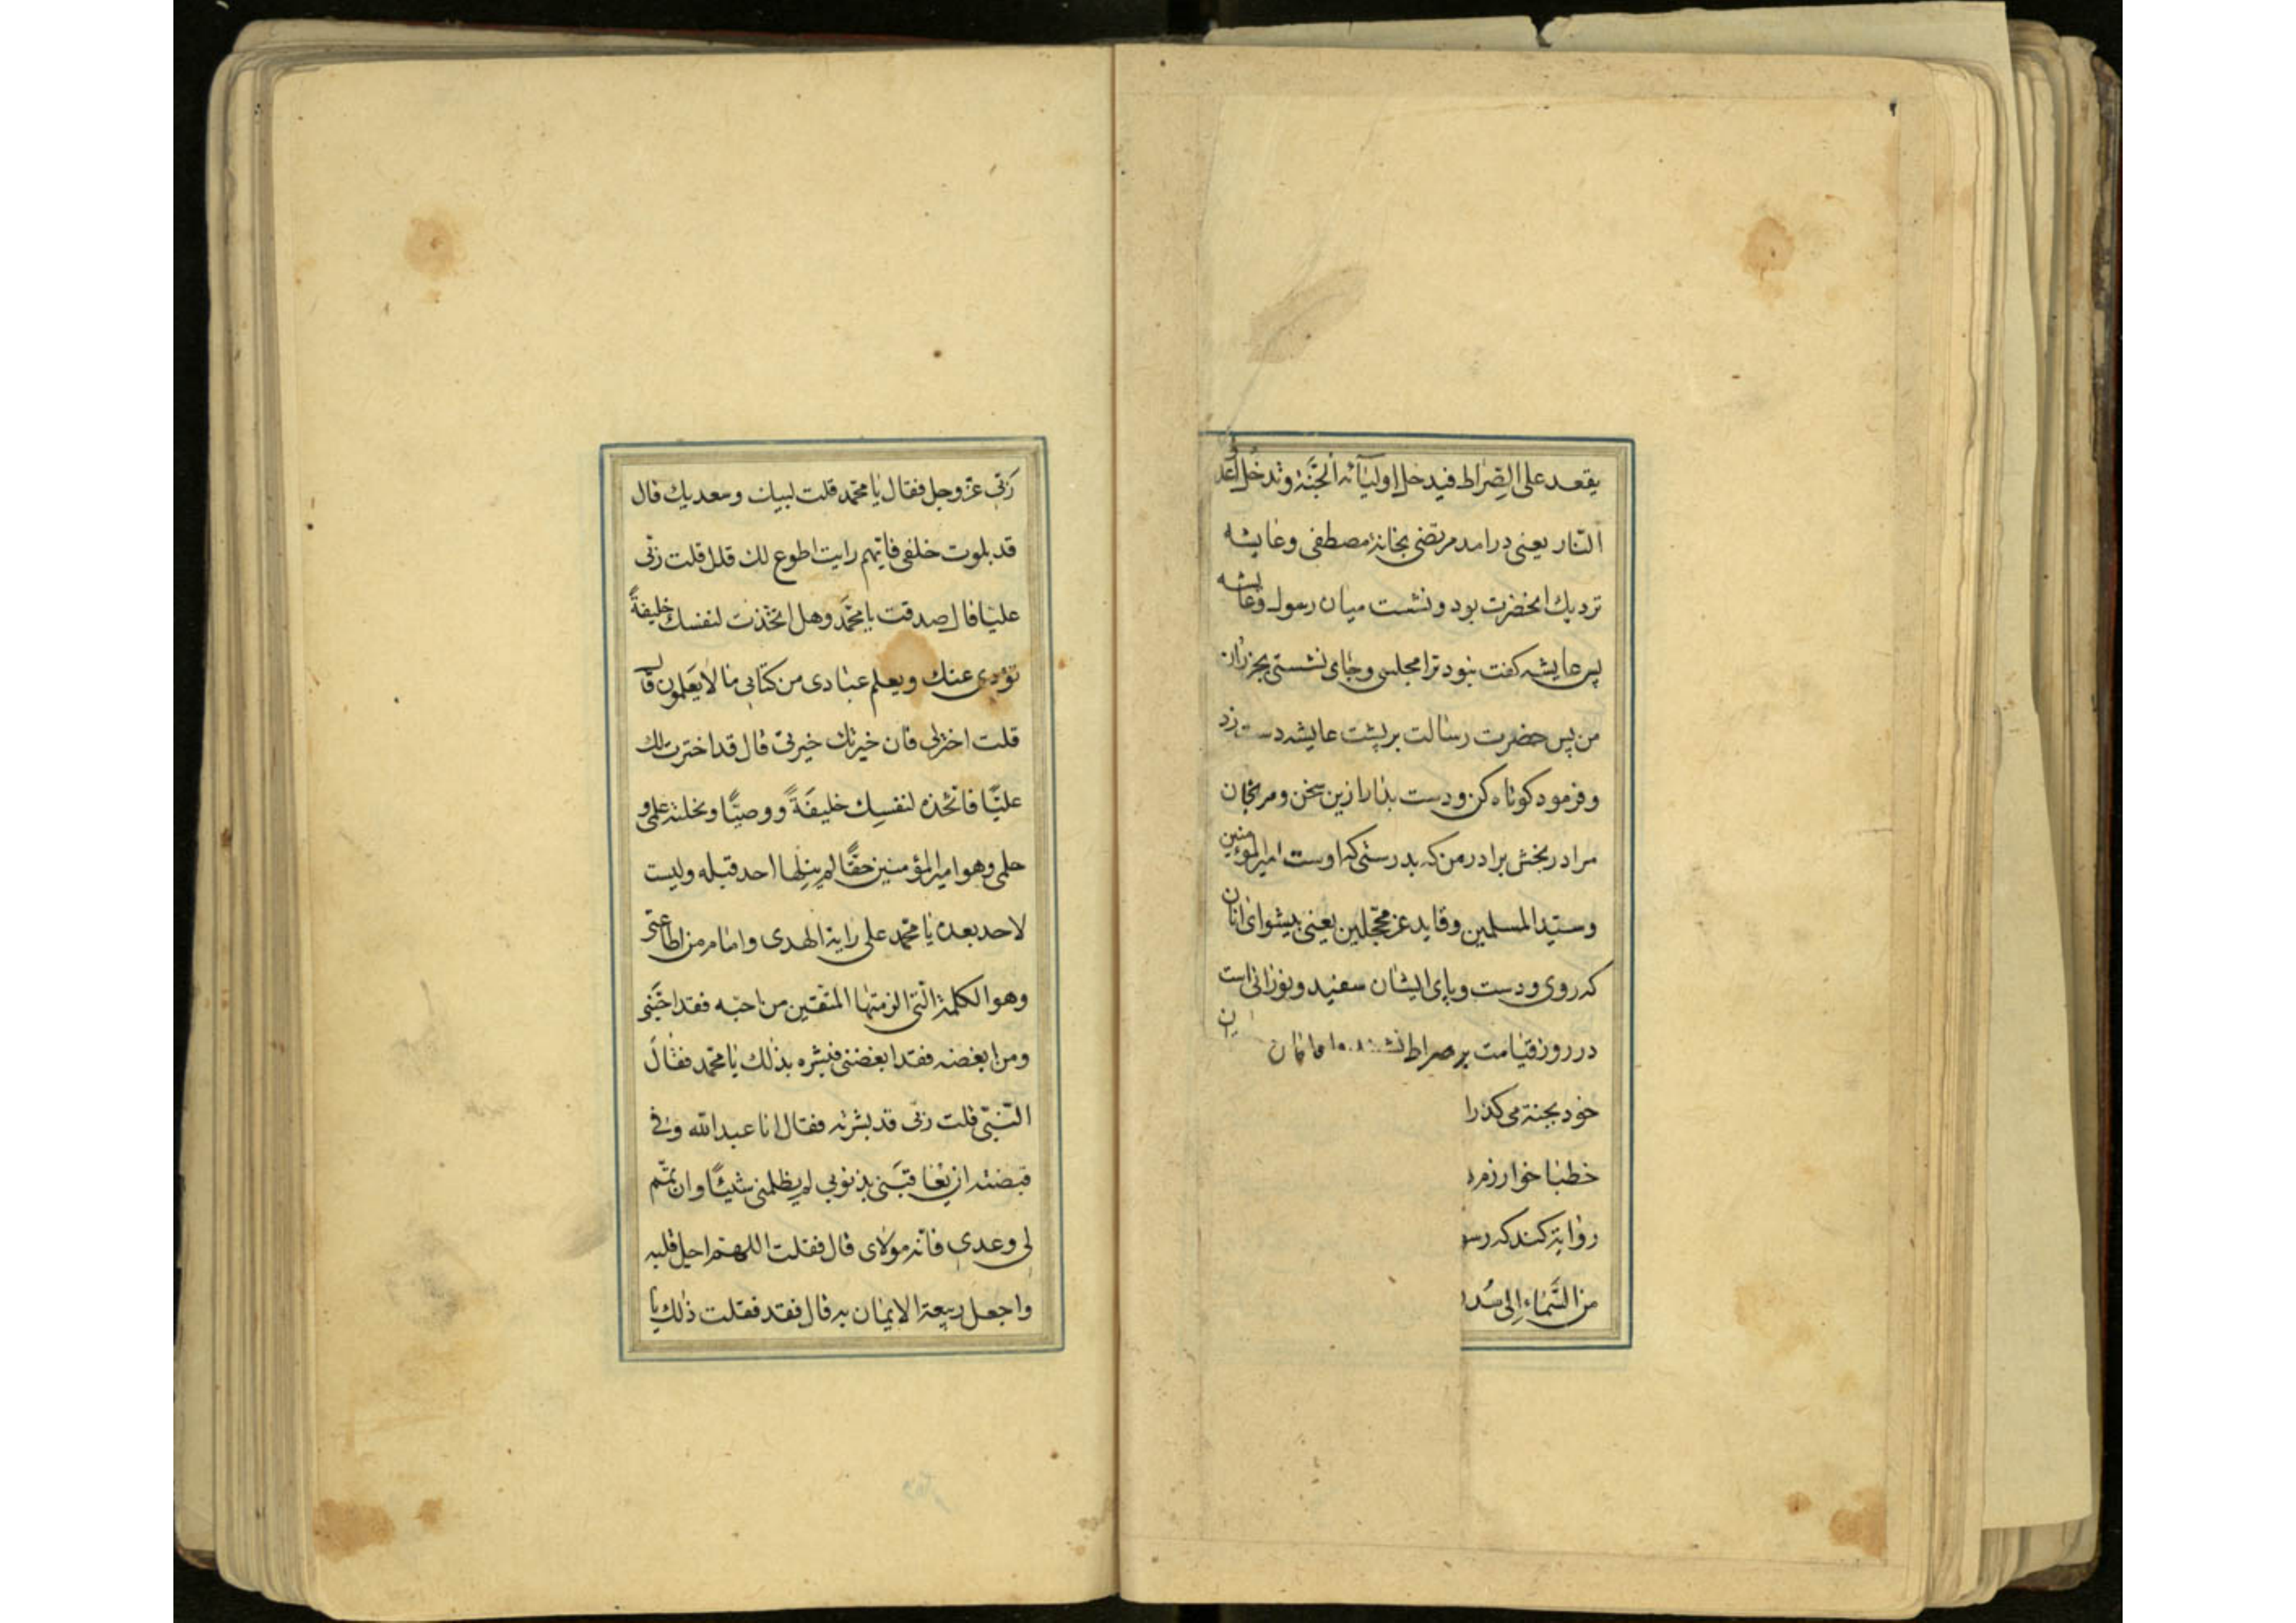 ٢
يقعد على الصراط فيدخل اوليآئه الجنة وتدخل اعد
النار يعنى درامد مرتضى بخانۀ مصطفى وعايشه
نزديك انحضرت بود ونشست ميان رسول وعايشه
پس عايشه كفت نبود ترا مجلسى وجاى نشستى بجز ران
من پس حضرت رسالت بر پشت عايشه دست زد
وفرمود كوتاه كن ودست بدار ازين سخن ومرنجان
مرا در بخش برادر من كه بدرستى كه اوست امير المؤمنين
وسيد المسلمين وقايد غر محجلين يعنى پيشواى انان
كه روى ودست وپاى ايشان سفيد ونورانى است
در روز قيامت بر صراط
خود بجنة مى كذرا
خطبا خوارزم
رواية كند كه رسو
من السماء الى سد
ربى عز وجل فقال يا محمد قلت لبيك وسعديك قال
قد بلوت خلقى فايهم رايت اطوع لك قلل قلت ربى
عليا قال صدقت يا محمد وهل اتخذت لنفسك خليفةً
تؤدى عنك ويعلم عبادى من كتابى ما لا يعلمون قال
قلت اختر لى فان خيرتك خيرتى قال قد اخترت لك
عليًا فاتخذه لنفسك خليفةً ووصيًا ونحلته علمى و
حلمى وهو امير المؤمنين حقًا لم ينلها احد قبله وليست
لاحد بعده يا محمد على راية الهدى وامام من اطاعنى
وهو الكلمة التى الزمتها المتقين من احبه فقد احبنى
ومن ابغضه فقد ابغضنى فبشره بذلك يا محمد فقال
النبى قلت ربى قد بشرته فقال انا عبد الله وفى
قبضته ان يعاقبنى بذنوبى لم يظلمنى شيئًا وان يتم
لى وعدى فانه مولاى قال فقلت اللهم اجل قلبه
واجعل ربيعة الايمان به قال فقد فعلت ذلك يا